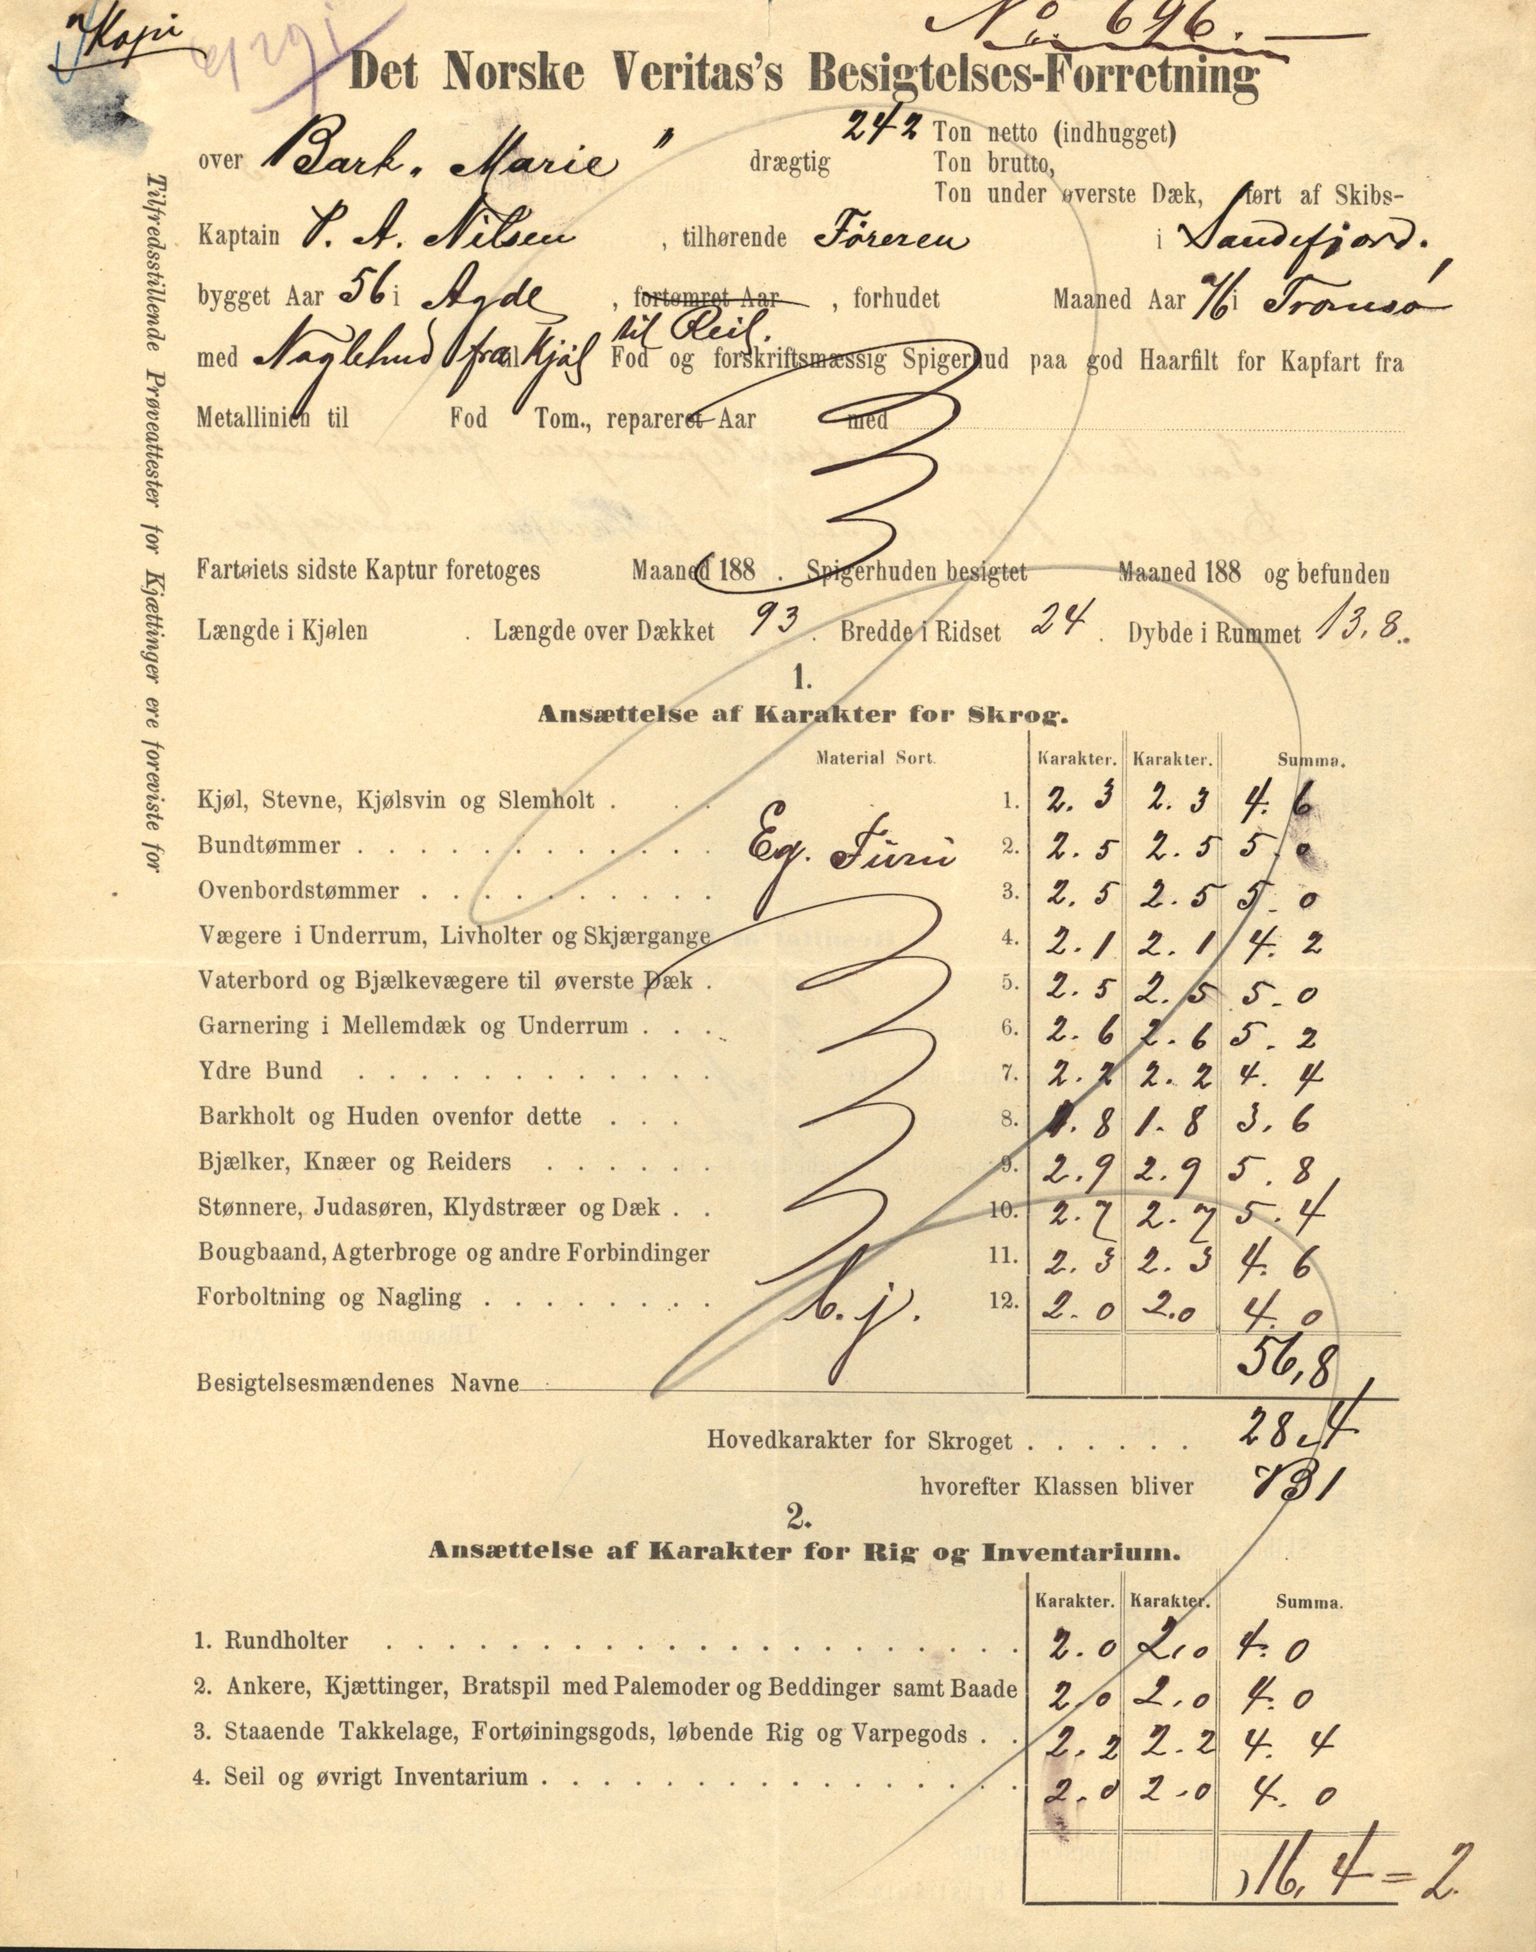 Kopi
No. 696.
Det Norske Veritas's Besigtelses-Forretning
over Bark. Marie" drægtig 242 Ton netto (indhugget)
Ton brutto,
Ton under øverste Dæk, ført af Skibs-
Kaptain P. A. Nilsen , tilhørende Föreren i Sandefjord.
bygget Aar 56 i Agde , fortømret Aar , forhudet Maaned Aar i Tromsø
til Reil.
med Naglehud fra Kjøl Fod og forskriftsmæssig Spigerhud paa god Haarfilt for Kapfart fra
Metallinien til Fod Tom., repareret Aar med
Fartøiets sidste Kaptur foretoges Maaned 188 . Spigerhuden besigtet Maaned 188 og befunden
Længde i Kjølen . Længde over Dækket 93 . Bredde i Ridset 24 . Dybde i Rummet 13,8.
Tilfredsstillende Prøveattester for Kjættinger ere foreviste for
1.
Ansættelse af Karakter for Skrog.
Material Sort. Karakter. Karakter. Summa.
Kjøl, Stevne, Kjølsvin og Slemholt . . . 1. 2. 3 2. 3 4. 6
Bundtømmer . . . . . . . . . . . . Eg. Furu 2. 2. 5 2. 5 5. 0
Ovenbordstømmer . . . . . . . . . . 3. 2. 5 2. 5 5. 0
Vægere i Underrum, Livholter og Skjærgange 4. 2. 1 2. 1 4. 2
Vaterbord og Bjælkevægere til øverste Dæk . 5. 2. 5 2. 5 5. 0
Garnering i Mellemdæk og Underrum . . . 6. 2. 6 2. 6 5. 2
Ydre Bund . . . . . . . . . . . . 7. 2. 2 2. 2 4. 4
Barkholt og Huden ovenfor dette . . . 8. 1. 8 1. 8 3. 6
Bjælker, Knæer og Reiders . . . . . . 9. 2. 9 2. 9 5. 8
Stønnere, Judasøren, Klydstræer og Dæk . . 10. 2. 7 2. 7 5. 4
Bougbaand, Agterbroge og andre Forbindinger 11. 2. 3 2. 3 4. 6
Forboltning og Nagling . . . . . . . . 12. 2. 0 2.0 4. 0
56,8
Besigtelsesmændenes Navne
Hovedkarakter for Skroget . . . . . . 28,4
hvorefter Klassen bliver B1
2.
Ansættelse af Karakter for Rig og Inventarium.
Karakter. Karakter. Summa.
1. Rundholter . . . . . . . . . . . . . . . . 2.0 2,0 4. 0
2. Ankere, Kjættinger, Bratspil med Palemoder og Beddinger samt Baade 2.0 2.0 4. 0
3. Staaende Takkelage, Fortøiningsgods, løbende Rig og Varpegods . . 2. 2 2. 2 4. 4
4. Seil og øvrigt Inventarium . . . . . . . . . . . . 2. 0 2.0 4. 0
16,4 = 2.